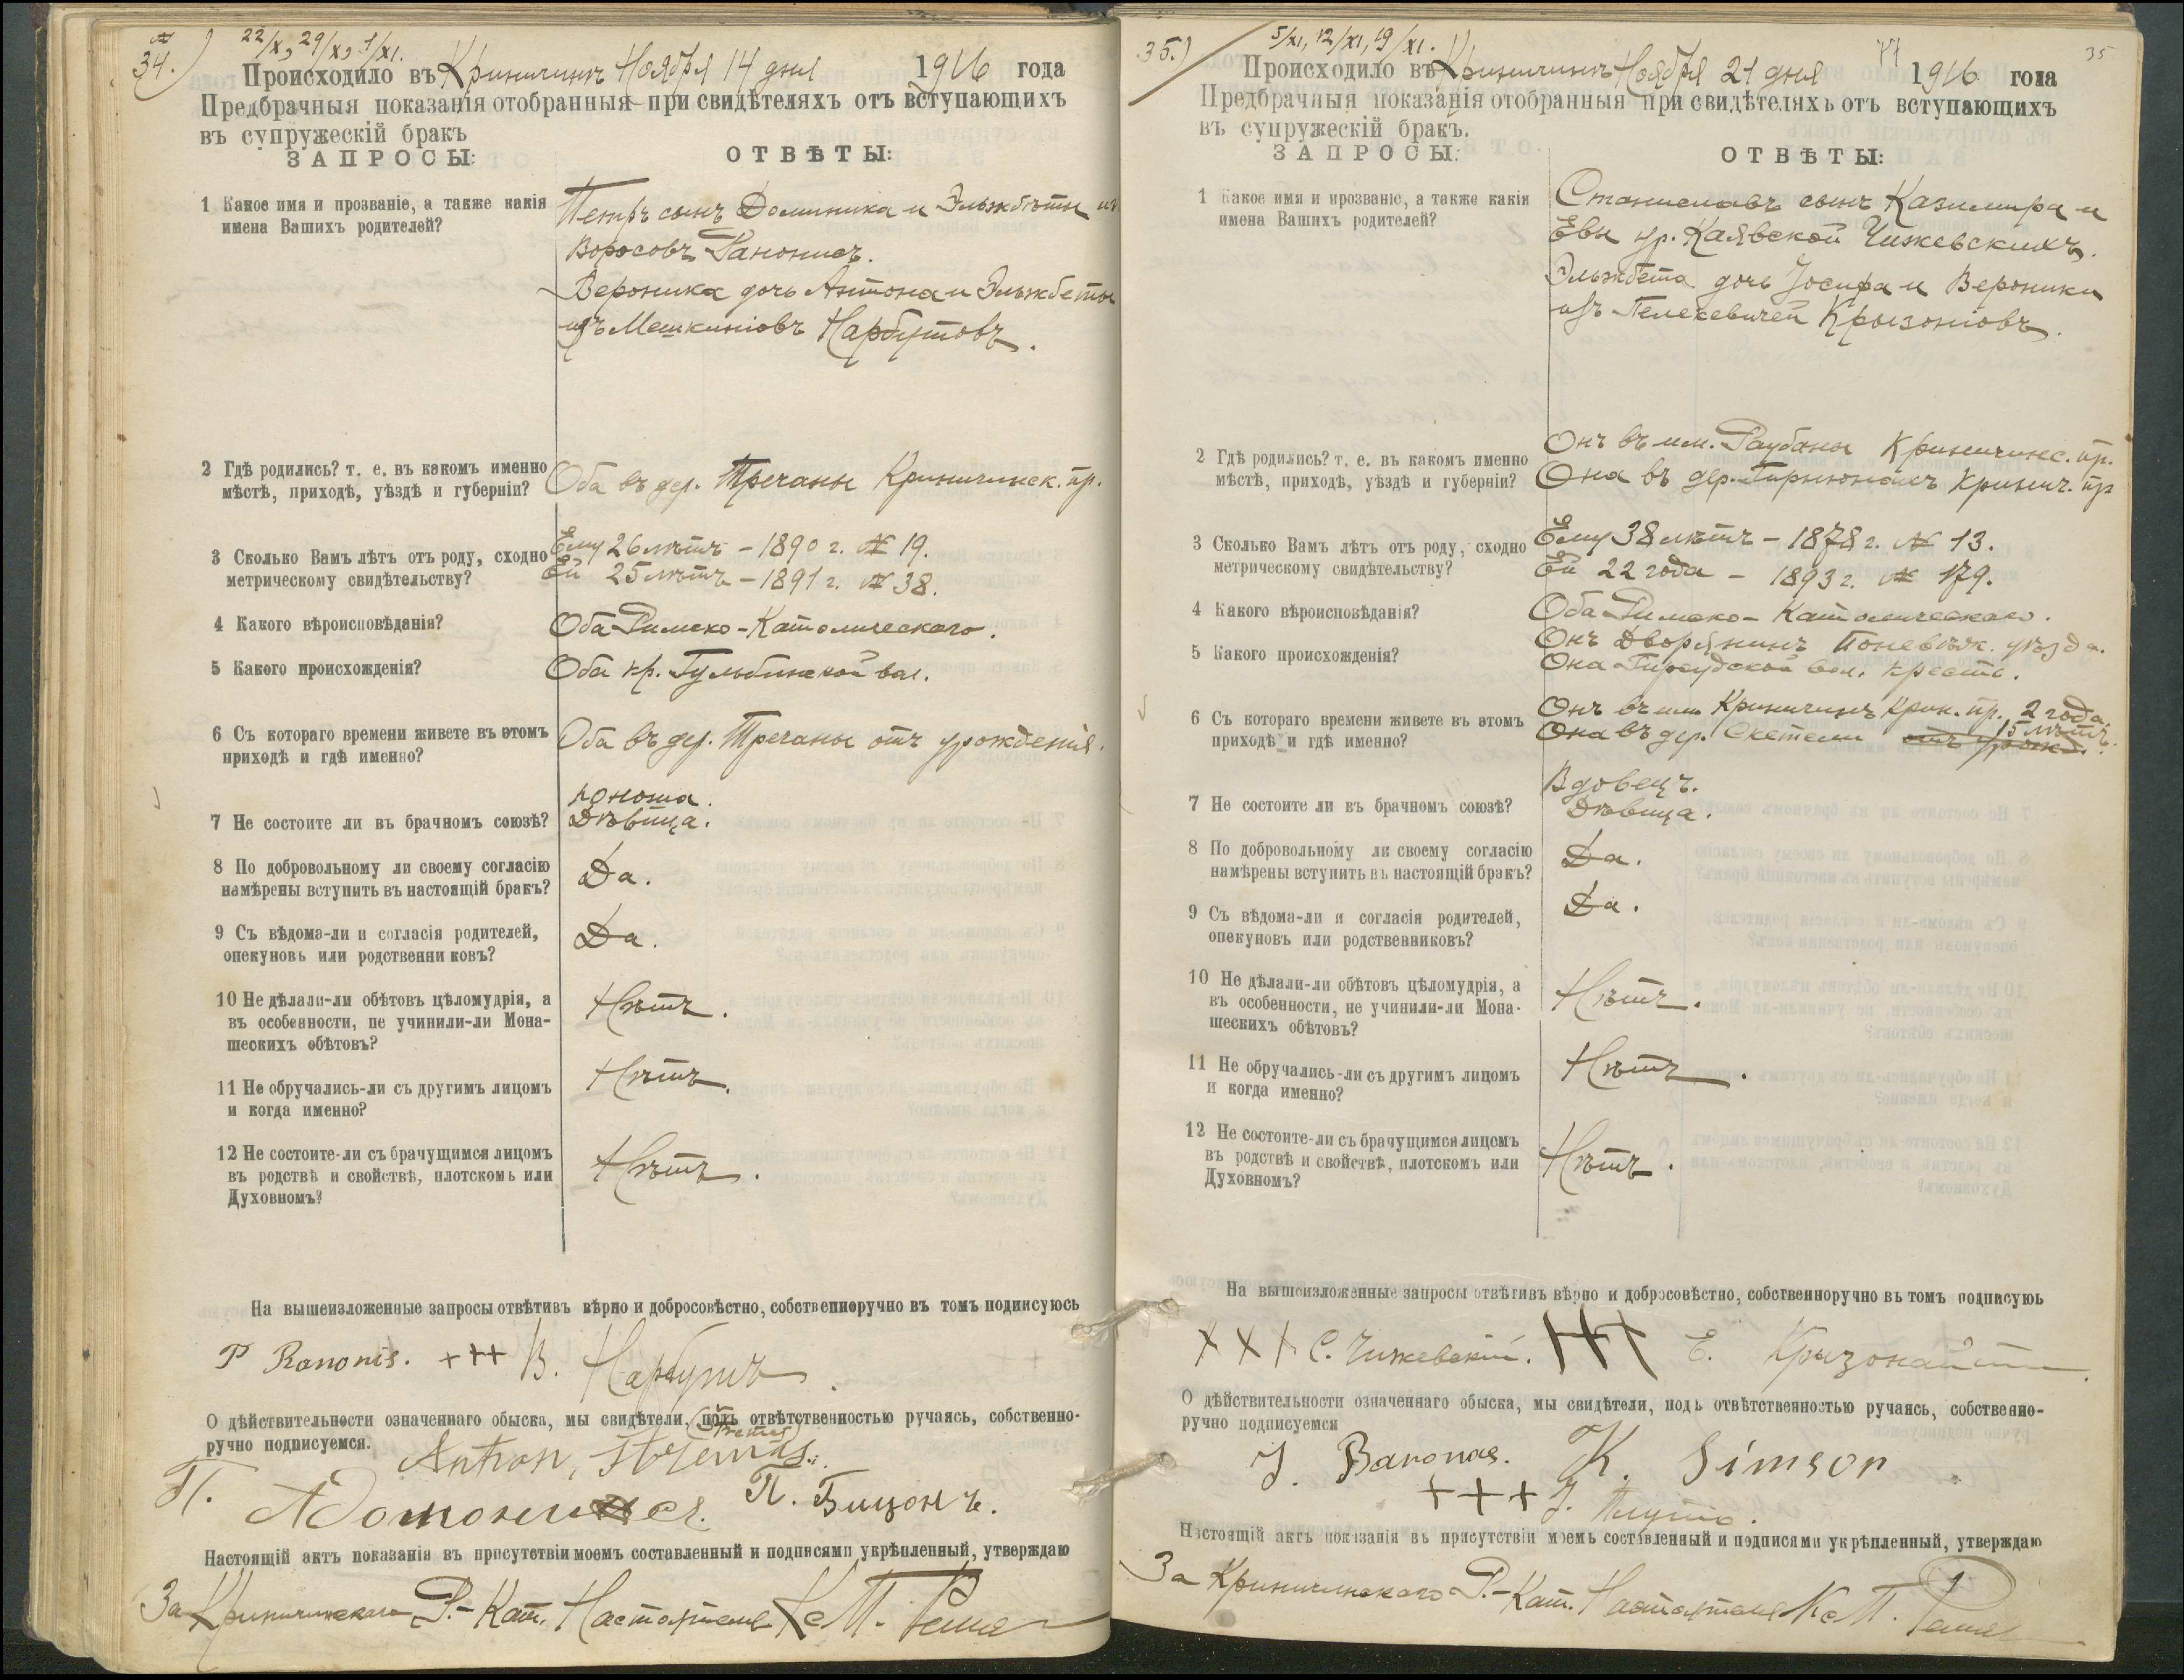 34.)
22/X, 29/X, 1/XI.
Происходило въ Криничинъ Ноября 14 дня 1916 года
Предбрачныя показанія отобранныя при свидѣтеляхъ отъ вступающихъ
въ супружескій бракъ
ЗАПРОСЫ: ОТВѢТЫ:
1 Какое имя и прозваніе, а также какія
имена Вашихъ родителей?
Петръ сынъ Доминика и Эльжбѣты изъ
Воросовъ Ранонисъ.
Вероника дочь Антона и Эльжбеты
изъ Мешкиніовъ Нарбутовъ.
2 Гдѣ родились? т. е. въ какомъ именно
мѣстѣ, приходѣ, уѣздѣ и губерніи?
Оба въ дер. Тречаны Криничинск. пр.
3 Сколько Вамъ лѣтъ отъ роду, сходно
метрическому свидѣтельству?
Ему 26 лѣтъ - 1890 г. № 19.
Ей 25 лѣтъ - 1891 г. № 38.
4 Какого вѣроисповѣданія?
Оба Римско-Католическаго.
5 Какого происхожденія?
Оба кр. Гульбинской вол.
6 Съ котораго времени живете въ этомъ
приходѣ и гдѣ именно?
Оба въ дер. Тречаны отъ урожденія.
7 Не состоите ли въ брачномъ союзѣ?
юноша.
Дѣвица.
8 По добровольному ли своему согласію
намѣрены вступить въ настоящій бракъ?
Да.
9 Съ вѣдома-ли и согласія родителей,
опекуновъ или родственни ковъ?
Да.
10 Не дѣлали-ли обѣтовъ цѣломудрія, а
въ особенности, не учинили-ли Мона-
шескихъ обѣтовъ?
Нѣтъ.
11 Не обручались-ли съ другимъ лицомъ
и когда именно?
Нѣтъ.
12 Не состоите-ли съ брачущимся лицомъ
въ родствѣ и свойствѣ, плотскомъ или
Духовномъ?
Нѣтъ.
На вышеизложенные запросы отвѣтивъ вѣрно и добросовѣстно, собственноручно въ томъ подписуюсь
P Ranonis. +++ В. Нарбутъ.
О дѣйствительности означеннаго обыска, мы свидѣтели, подъ отвѣтственностью ручаясь, собственно-
ручно подписуемся.
Antron,
П. П. Бицонъ.
Настоящій актъ показанія въ присутствіи моемъ составленный и подписями укрѣпленный, утверждаю
За Криничинскаго Р.-Кат. Настоятеля Кс М.
35.)
5/XI, 12/XI, 19/XI.
35
Происходило въ Криничинъ Ноября 21 дня 1916 года
Предбрачныя показанія отобранныя при свидѣтеляхъ отъ вступающихъ
въ супружескій бракъ.
ЗАПРОСЫ: ОТВѢТЫ:
1 Какое имя и прозваніе, а также какія
имена Вашихъ родителей?
Станиславъ сынъ Казимира и
Евы ур. Каявской Чижевскихъ.
Эльжбета дочь Іосифа и Вероники
изъ Пелекевичей Крызоніовъ.
2 Гдѣ родились? т. е. въ какомъ именно
мѣстѣ, приходѣ, уѣздѣ и губерніи?
Онъ въ им. Раубаны Криничинс. пр.
Она въ дер. Гирнюнахъ Кринич. пр
3 Сколько Вамъ лѣтъ отъ роду, сходно
метрическому свидѣтельству?
Ему 38 лѣтъ - 1878 г. № 13.
Ей 22 года - 1893 г. № 179.
4 Какого вѣроисповѣданія?
Оба Римско-Католическаго.
5 Какого происхожденія?
Онъ Дворянинъ Поневѣж. уѣзда.
Она вол. крест.
6 Съ котораго времени живете въ этомъ
приходѣ и гдѣ именно?
Онъ въ им Криничинъ Крин. пр. 2 года.
Она въ дер. Скетели отъ урожд. 15 лѣтъ.
7 Не состоите ли въ брачномъ союзѣ?
Вдовецъ.
Дѣвица.
8 По добровольному ли своему согласію
намѣрены вступить въ настоящій бракъ?
Да.
9 Съ вѣдома-ли и согласія родителей,
опекуновъ или родственниковъ?
Да.
10 Не дѣлали-ли обѣтовъ цѣломудрія, а
въ особенности, не учинили-ли Мона-
шескихъ обѣтовъ?
Нѣтъ.
11 Не обручались-ли съ другимъ лицомъ
и когда именно?
Нѣтъ.
12 Не состоите-ли съ брачущимся лицомъ
въ родствѣ и свойствѣ, плотскомъ или
Духовномъ?
Нѣтъ.
На вышеизложенные запросы отвѣтивъ вѣрно и добросовѣстно, собственноручно въ томъ подписуюь
XXX С. Чижевскій. +++ Е. Крызонайти
О дѣйствительности означеннаго обыска, мы свидѣтели, подъ отвѣтственностью ручаясь, собственно-
ручно подписуемся
J. Baronas. K. Simson
+++ J.
Настоящій актъ показанія въ присутствіи моемъ составленный и подписями укрѣпленный, утверждаю
За Криничинскаго Р.-Кат. Настоятеля Кс М.